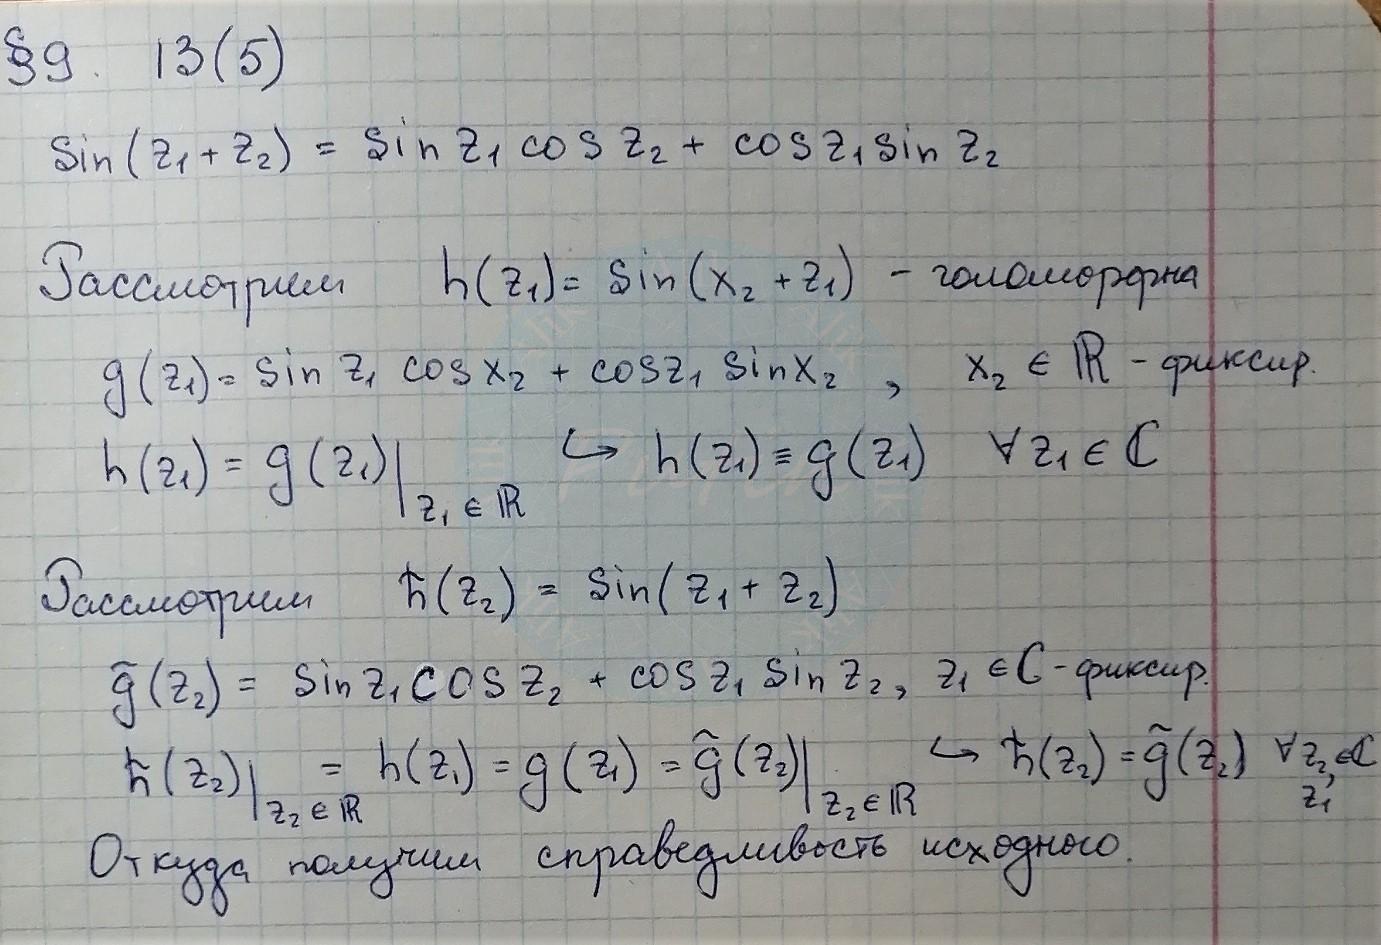 §9. 13(5)
sin(z₁ + z₂) = sin z₁ cos z₂ + cos z₁ sin z₂
Рассмотрим h(z₁) = sin(x₂ + z₁) - голоморфна
g(z₁) = sin z₁ cos x₂ + cos z₁ sin x₂ , x₂ ∈ ℝ - фиксир.
h(z₁) = g(z₁)|z₁ ∈ ℝ ↪ h(z₁) ≡ g(z₁) ∀ z₁ ∈ ℂ
Рассмотрим h̃(z₂) = sin(z₁ + z₂)
g̃(z₂) = sin z₁ cos z₂ + cos z₁ sin z₂, z₁ ∈ ℂ - фиксир.
h̃(z₂)|z₂ ∈ ℝ = h(z₁) = g(z₁) = g̃(z₂)|z₂ ∈ ℝ ↪ h̃(z₂) = g̃(z₂) ∀ z₂, z₁ ∈ ℂ
Откуда получим справедливость исходного.